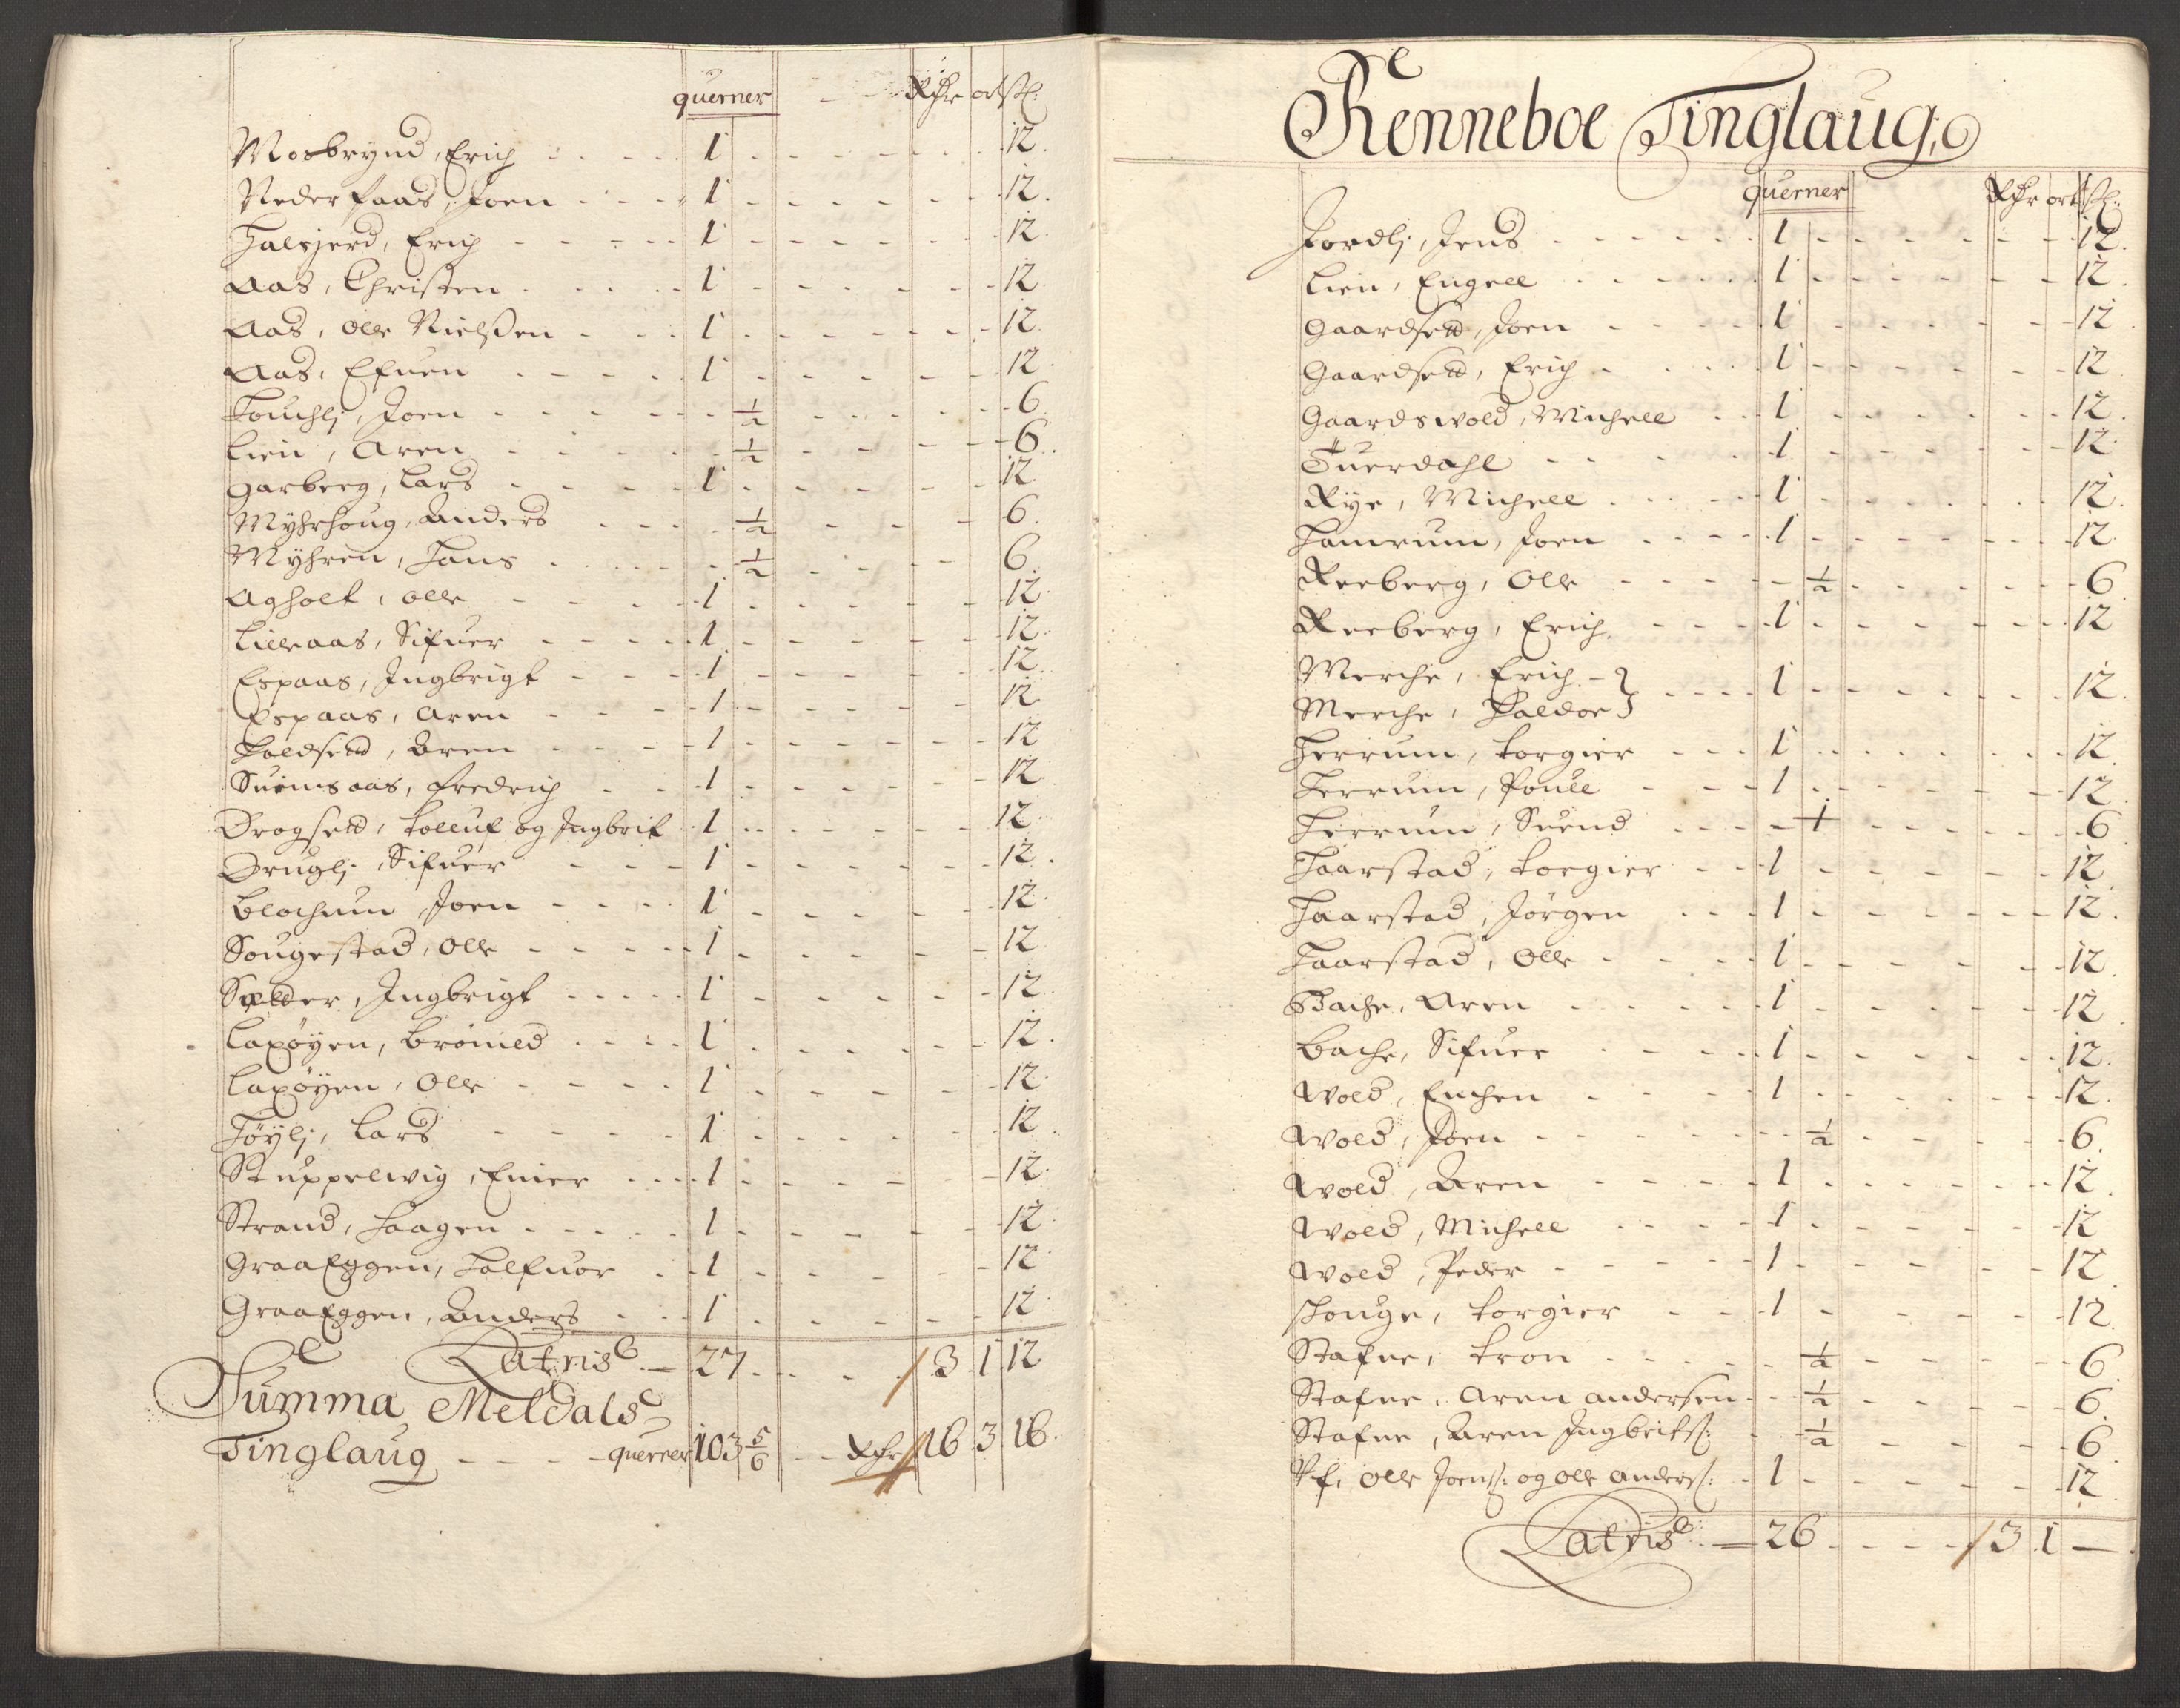 querner Rdr ort ß:
Mosbrynd, Erich 1 12.
Nederaas, Joen 1 12.
Halsjerd, Erich 1 12
Aas, Christen 1 12
Aas, Olle Nielßen 1 12
Aas, Efuen 1 12
Touchlj, Joen ½ 6
Lien, Aren ½ 6
Garberg, Lars 1 12
Myhrhoug, Anders ½ 6
Myhren, Hans ½ 6
Agholt, Olle 1 12
Lilleaas, Sifuer 1 12
Espaas, Ingbrigt 1 12
Espaas, Aren 1 12
Holdsett, Aren 1 12
Suimsaas, Fredrich 1 12
Drogsett, Tolluf og Ingbrit 1 12
Druglj, Sifuer 1 12.
Blochum Joen 1 12
Sougestad, Olle 1 12
Sætter, Ingbrigt 1 12
Laxøyen, Broined 1 12.
Laxøyen, Olle 1 12
Høylj, Lars 1 12
Stuppelwig, Einer 1 12
Strand, Haagen 1 12
Graaeggen, Halfuor 1 12
Graaeggen, Anders 1 12
Latris 27 3 1 12
Summa Meldals
Tinglaug querner 103 5/6 Rdr 16 3 16.
Renneboe Tinglaug,
querner Rdr ort ß:
Jordlj, Jens 1 12.
Lien, Engell 1 12
Gaardsett, Joen 1 12
Gaardsett, Erich 1 12
Gaardswold, Michell 1 12
Tuerdahl 1 12
Rye, Michell 1 12
Hamrum, Joen 1 12
Reeberg, Olle ½ 6
Reeberg, Erich 1 12
Merche, Erich } 1 12
Merche, Haldor }
Herrum, Torgier 1 12
Herrum, Pouel 1 12
Herrum, Suend 6
Haarstad, Torgier 1 12
Haarstad, Jørgen 1 12.
Haarstad, Olle 1 12
Bache, Aren 1 12
Bache, Sifuer 1 12.
Wold, Enchen 1 12
Wold, Joen ½ 6
Wold, Aren 1 12
Wold, Michell 1 12
Wold, Peder 1 12
Houge, Torgier 1 12
Stafne, Tron ½ 6
Stafne, Aren Andersen ½ 6
Stafne, Aren Ingbritß: ½ 6
Olle Joenß: og Olle Anderß: 1 12
Latris 26 3 1 —